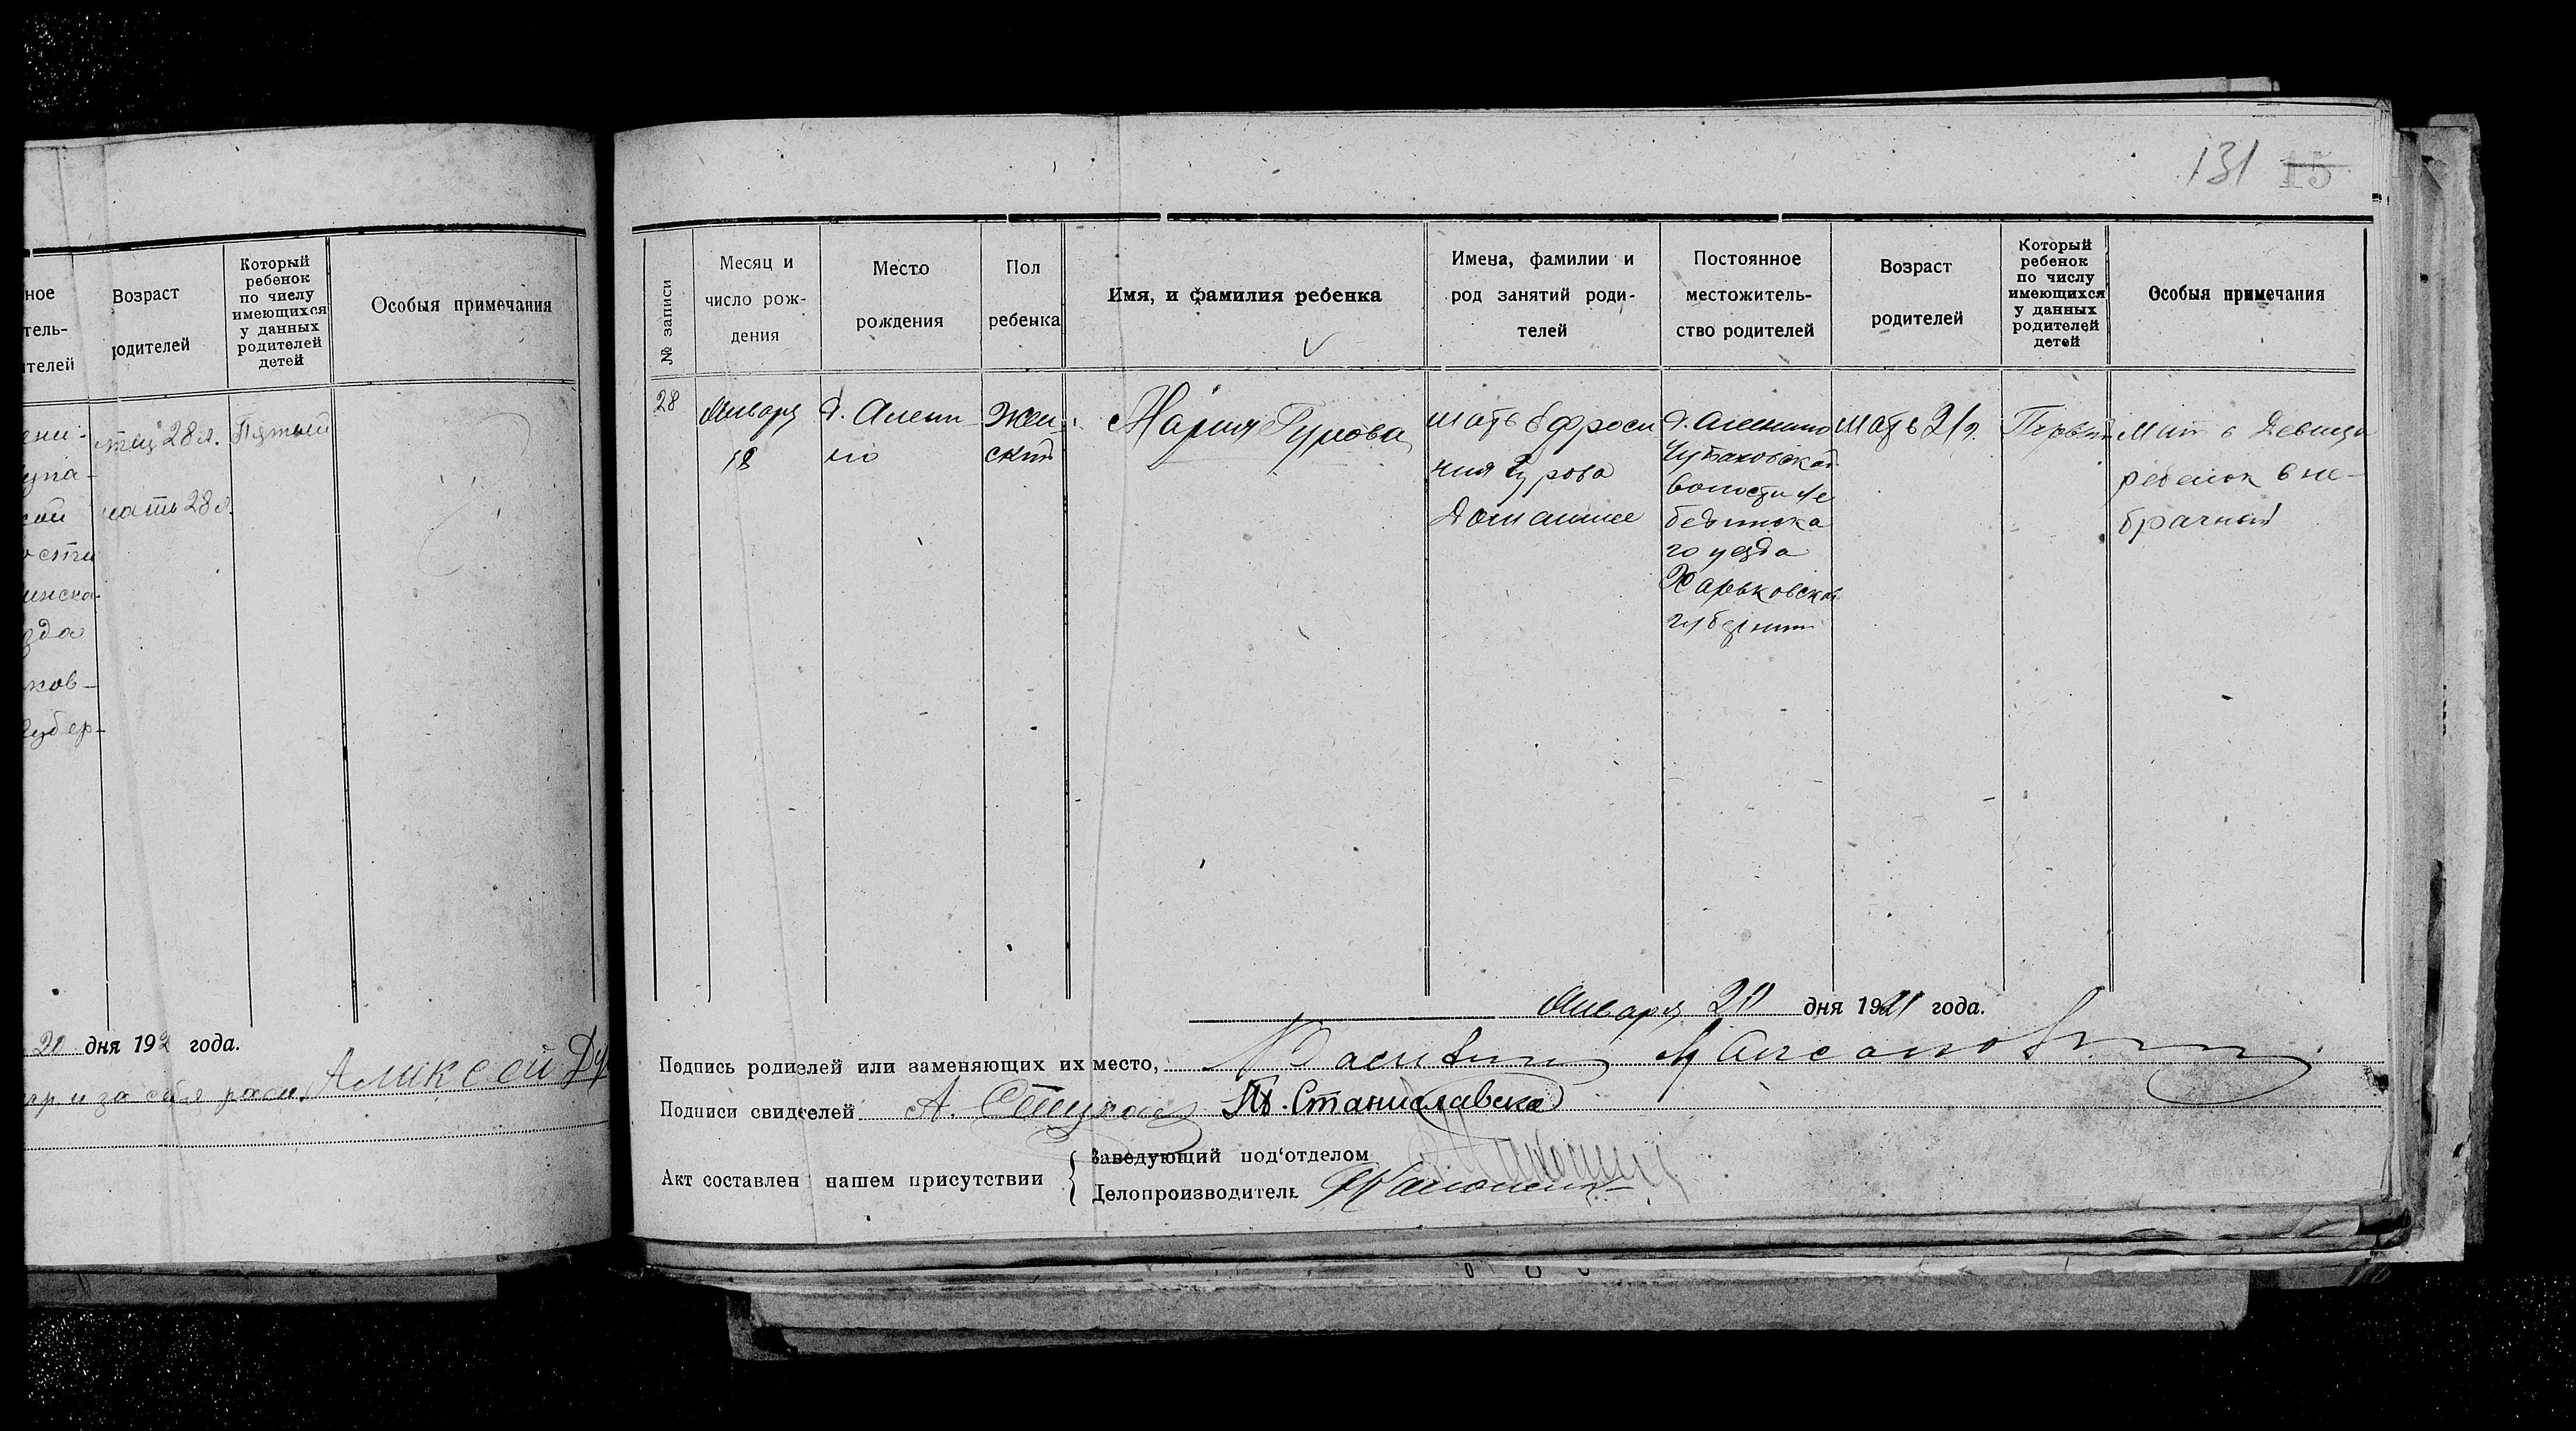 ное
тель-
ителей
Возраст
родителей
Который
ребенок
по числу
имеющихся
у данных
родителей
детей
Особыя примечания
28 л.
Пятый
мать 28 л.
зда
ков-
губер-
20 дня 192 года.
Аликсей
131 15
№ записи
Месяц и
число рож-
дения
Место
рождения
Пол
ребенка
Имя, и фамилия ребенка
Имена, фамилии и
род занятий роди-
телей
Постоянное
местожитель-
ство родителей
Возраст
родителей
Который
ребенок
по числу
имеющихся
у данных
родителей
детей
Особыя примечания
28
Января
18
д. Аленн
но
Жен-
ский
Мария Гурова
мать Ефроси
ния Гурова
Домашнее
д. Аленино
Чупаховской
волости Ле
бединска
го уезда
Харьковской
губернии
мать 21 г.
Первый
Мать Девица
ребенок вне-
брачный
Января 20 дня 1921 года.
Подпись родителей или заменяющих их место,
Подписи свидетелей А. Станиславска
Акт составлен нашем присутствии
Заведующий под'отделом
Делопроизводитель